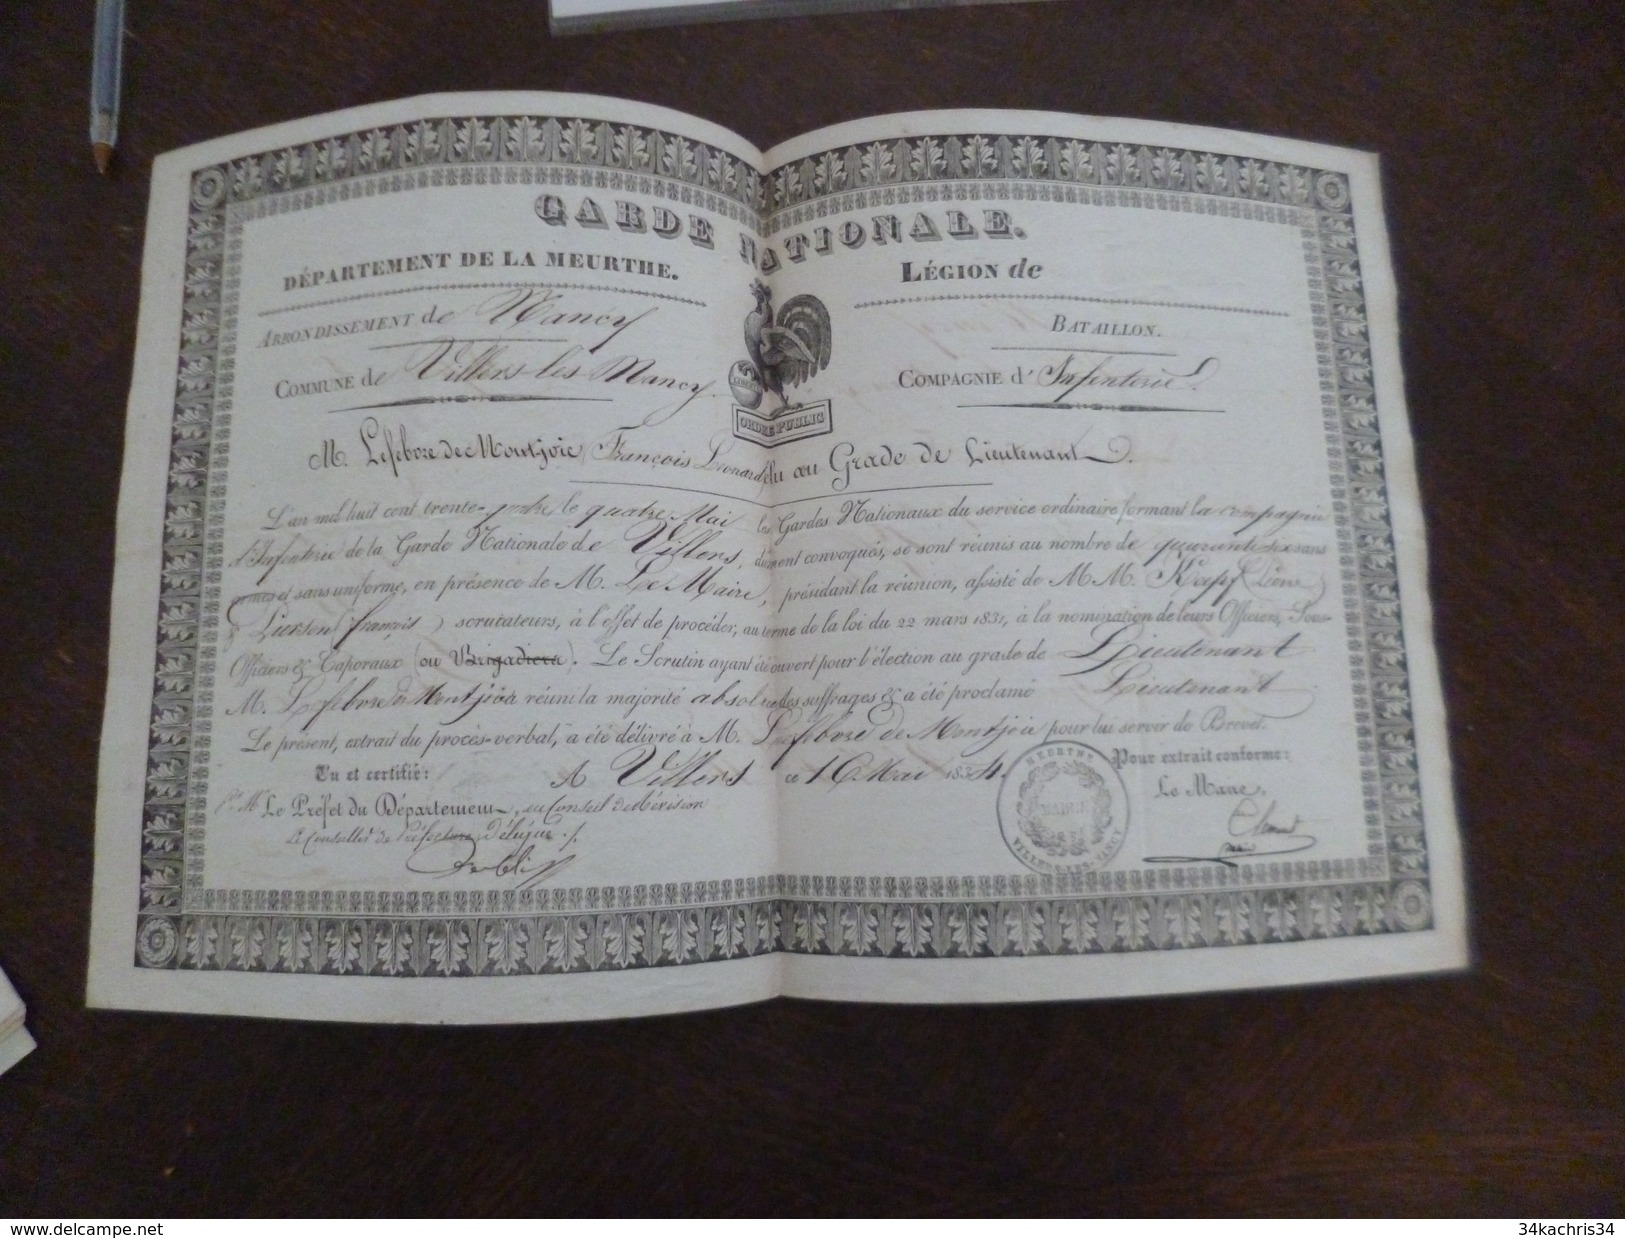 GARDE NATIONALE.
DÉPARTEMENT DE LA MEURTHE.
LÉGION de
ARRONDISSEMENT de Nancy
BATAILLON.
COMMUNE de Villers-les-Nancy.
COMPAGNIE d'Infanterie.
LIBERTÉ
ORDRE PUBLIC
M. Lefebvre de Montjoie (François Léonard) élu au Grade de Lieutenant.
L'an mil huit cent trente-quatre le quatre Mai les Gardes Nationaux du service ordinaire formant la compagnie
d'Infanterie de la Garde Nationale de Villers, dûment convoqués, se sont réunis au nombre de quarante six sans
armes et sans uniforme, en présence de M. Le Maire, présidant la réunion, assisté de M.M. Kœpf
& Pierson (françois) scrutateurs, à l'effet de procéder, au terme de la loi du 22 mars 1831, à la nomination de leurs Officiers, Sous-
Officiers & Caporaux (ou Brigadiers). Le Scrutin ayant été ouvert pour l'élection au grade de Lieutenant
M. Lefebvre de Montjoie a réuni la majorité absolue des suffrages & a été proclamé Lieutenant
Le présent, extrait du procès-verbal, a été délivré à M. Lefebvre de Montjoie pour lui servir de Brevet.
A Villers ce 16 Mai 1834.
Vu et certifié:
Pr. Mr. Le Préfet du Département, en Conseil de Révision
Le Conseiller de Préfecture délégué
Pour extrait conforme:
Le Maire,
MEURTHE
MAIRIE
VILLERS-LES-NANCY
www.delcampe.net
34kachris34